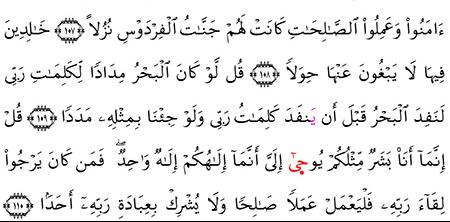 ءَامَنُواْ وَعَمِلُواْ الصَّٰلِحَٰتِ كَانَتْ لَهُمْ جَنَّٰتُ الْفِرْدَوْسِ نُزُلاً ﴿١٠٧﴾ خَٰلِدِينَ
فِيهَا لَا يَبْغُونَ عَنْهَا حِوَلًا ﴿١٠٨﴾ قُل لَّوْ كَانَ الْبَحْرُ مِدَادًا لِّكَلِمَٰتِ رَبِّى
لَنَفِدَ الْبَحْرُ قَبْلَ أَن يَنفَدَ كَلِمَٰتُ رَبِّى وَلَوْ جِئْنَا بِمِثْلِهِۦ مَدَدًا ﴿١٠٩﴾ قُلْ
إِنَّمَآ أَنَا۠ بَشَرٌ مِّثْلُكُمْ يُوحِىٰٓ إِلَىَّ أَنَّمَآ إِلَٰهُكُمْ إِلَٰهٌ وَٰحِدٌ ۖ فَمَن كَانَ يَرْجُواْ
لِقَآءَ رَبِّهِۦ فَلْيَعْمَلْ عَمَلًا صَٰلِحًا وَلَا يُشْرِكْ بِعِبَادَةِ رَبِّهِۦٓ أَحَدَۢا ﴿١١٠﴾